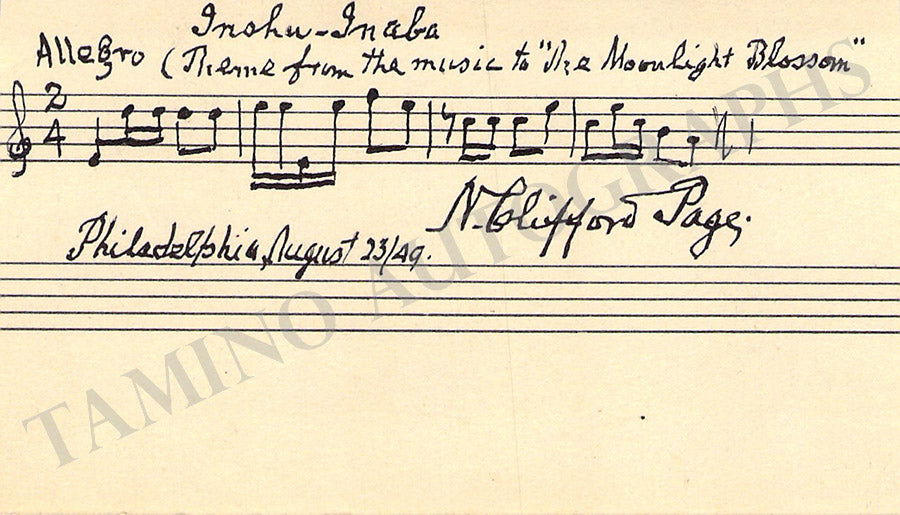 Inshu-Inaba
Allegro (Theme from the music to "The Moonlight Blossom"
2
4
N. Clifford Page.
Philadelphia, August 23/49.
TAMINO AUTOGRAPHS